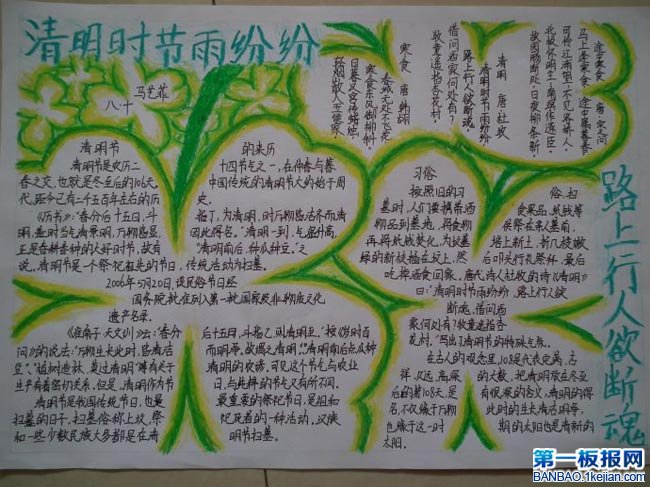 清明时节雨纷纷
八、十
马艺菲
途中寒食 唐·宋之问
马上逢寒食，途中属暮春。
可怜江浦望，不见洛桥人。
北极怀明主，南溟作逐臣。
故园肠断处，日夜柳条新。
清明 唐 杜牧
清明时节雨纷纷
路上行人欲断魂。
借问酒家何处有？
牧童遥指杏花村。
寒食 唐 韩翃
春城无处不飞花
寒食东风御柳斜
日暮汉宫传蜡烛，
轻烟散入五侯家。
路上行人欲断魂
清明节
清明是农历二
春之交，也就是冬至后的106天。
代，距今已有二千五百年左右的历
《历书》：“春分后十五日，斗
明，盖时当气清景明，万物皆显，
正是春耕春种的大好时节，故有
说。清明节是一个祭祀祖先的节日，
的来历
十四节气之一，在仲春与暮
中国传统的清明节大约始于周
史。
指丁，为清明，时万物皆洁齐而清
因此得名。“清明一到，气温升高，
“清明前后，种瓜种豆。”之
传统活动为扫墓。
2006年5月20日，该民俗节日经
国务院批准列入第一批国家级非物质文化
遗产名录。
《淮南子·天文训》云：“春分
问》的说法：“万物生长此时，皆清洁
节是我国传统节日，也是
扫墓的日子，扫墓俗称上坟，祭
和一些少数民族大多都是在清
后十五日，斗指乙，则清明至。”
清明前后点瓜种
清明的农谚，可见这个节气与农业
最重要的祭祀节日，是祖和
祀死者的一种活动，汉族
明节扫墓。
习俗
按照旧的习
墓时，人们要携带酒
物品到墓地，将食物
再将纸钱焚化，为坟墓
的新枝插在坟上，然
吃掉酒食回家。唐代诗人杜牧的诗《清明》
曰：“清明时节雨纷纷，路上行人欲
断魂。借问酒
家何处有？牧童遥指杏
花村。”写出了清明节的特殊气氛。
俗，扫
食果品，纸钱等
供祭在亲人墓前，
培上新土，折几枝嫩绿
后叩头行礼祭拜，最后
在古人的观念里，108是代表完满、吉
祥、久远、高深
后的第108天，是
名，不仅缘于万物
也缘于这一时
太阳。
的大数，把清明放在冬至
有很深的含义，清明的得
此时的生长清洁明净，
期的太阳也是清新的
第一板报网
BANBAO.1kejian.com